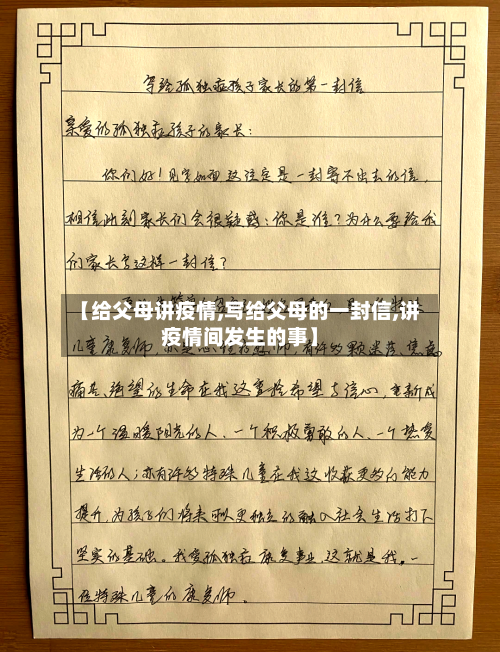 写给孤独症孩子家长的第一封信
亲爱的孤独症孩子的家长:
你们好!见字如面,这注定是一封寄不出去的信,
相信此刻家长们会很疑惑:你是谁?为什么要给我
们家长写这样一封信?
【给父母讲疫情,写给父母的一封信,讲
疫情间发生的事】
儿童康复师,
痛苦、绝望的生命在我这重拾希望与信心,重新成
为一个温暖阳光的人、一个积极勇敢的人、一个热爱
生活的人;亦有许多特殊儿童在我这收获更多的能力
提升,为孩子们将来更独立的融入社会生活打下
坚实的基础。我爱孤独症康复事业,这就是我,一
位特殊儿童的康复师。